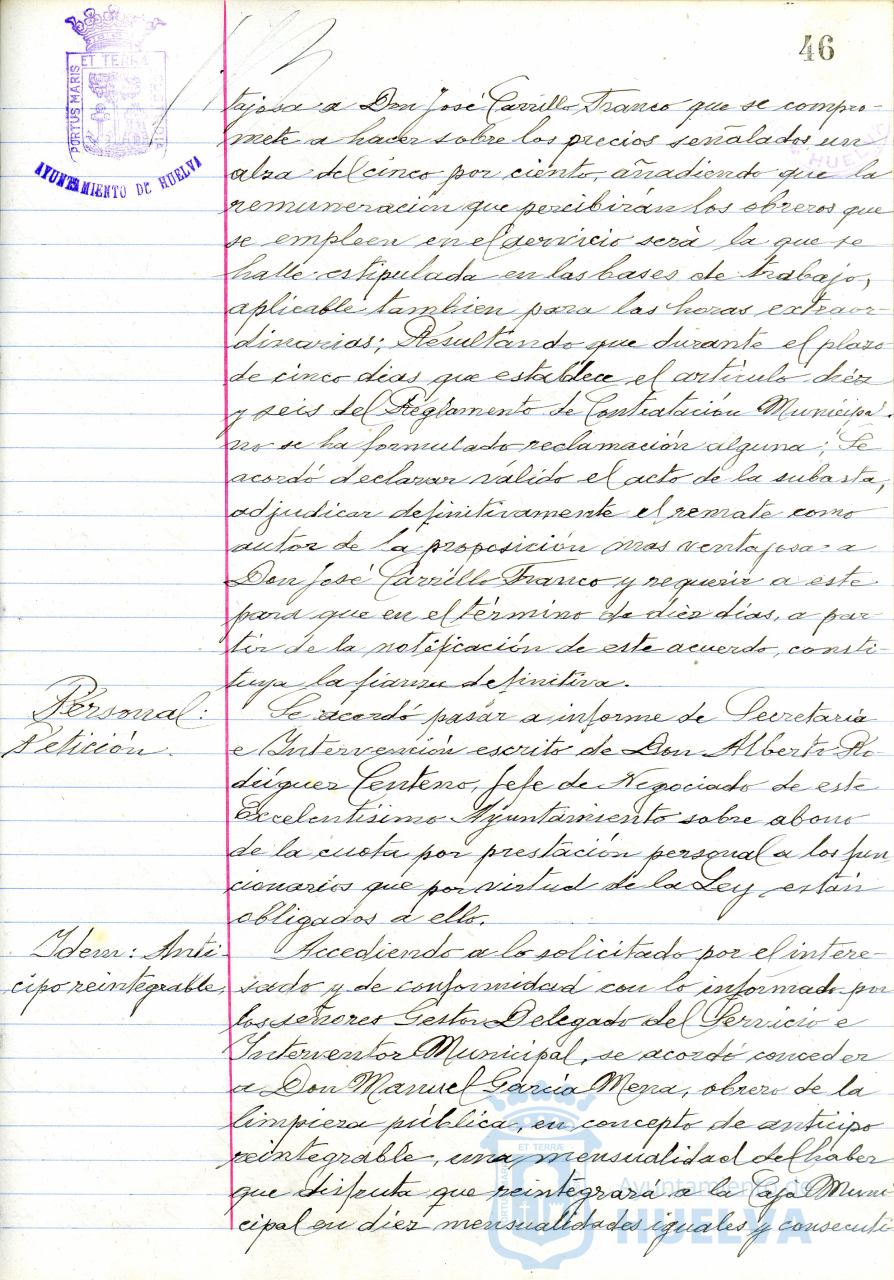 46
PORTUS MARIS
ET TERRÆ
CUSTODIA
AYUNTAMIENTO DE HUELVA
HUELVA
tajosa a Don José Carrillo Franco que se compro-
mete a hacer sobre los precios señalados un
alza del cinco por ciento, añadiendo que la
remuneración que percibirán los obreros que
se empleen en el servicio será la que se
halle estipulada en las bases de trabajo,
aplicable tambien para las horas extraor-
dinarias; Resultando que durante el plazo
de cinco dias que establece el artículo diez
y seis del Reglamento de Contratación Municipal
no se ha formulado reclamación alguna; Se
acordó declarar válido el acto de la subasta,
adjudicar definitivamente el remate como
autor de la proposición mas ventajosa a
Don José Carrillo Franco y requerir a este
para que en el término de diez dias, a par-
tir de la notificación de este acuerdo, consti-
tuya la fianza definitiva.
Personal:
Petición.
Se acordó pasar a informe de Secretaría
e Intervención escrito de Don Alberto Ro-
driguez Centeno, Jefe de Negociado de este
Excelentísimo Ayuntamiento sobre abono
de la cuota por prestación personal a los fun
cionarios que por virtud de la Ley están
obligados a ello.
Idem: Anti-
cipo reintegrable.
Accediendo a lo solicitado por el intere-
sado y de conformidad con lo informado por
los señores Gestor Delegado del Servicio e
Interventor Municipal, se acordó conceder
a Don Manuel García Mena, obrero de la
limpieza pública, en concepto de anticipo
reintegrable, una mensualidad del haber
que disfruta que reintegrará a la Caja Muni
cipal en diez mensualidades iguales y consecuti
ET TERRÆ
Ayuntamiento de
HUELVA